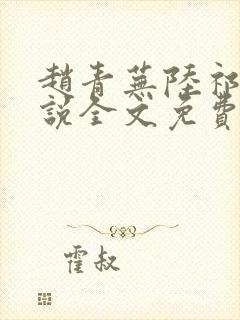 趙青蕪陸祁
說全文免費
霍叔